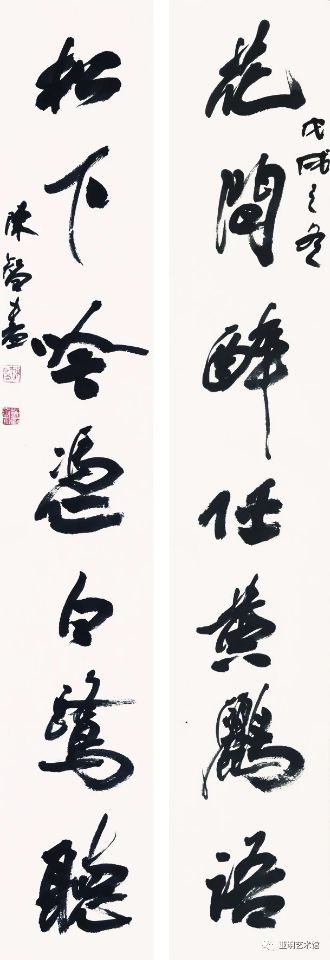 花間醉任黃鸝語
戊戌之冬
松下吟憑白鷺聽
陳
亚明艺术馆